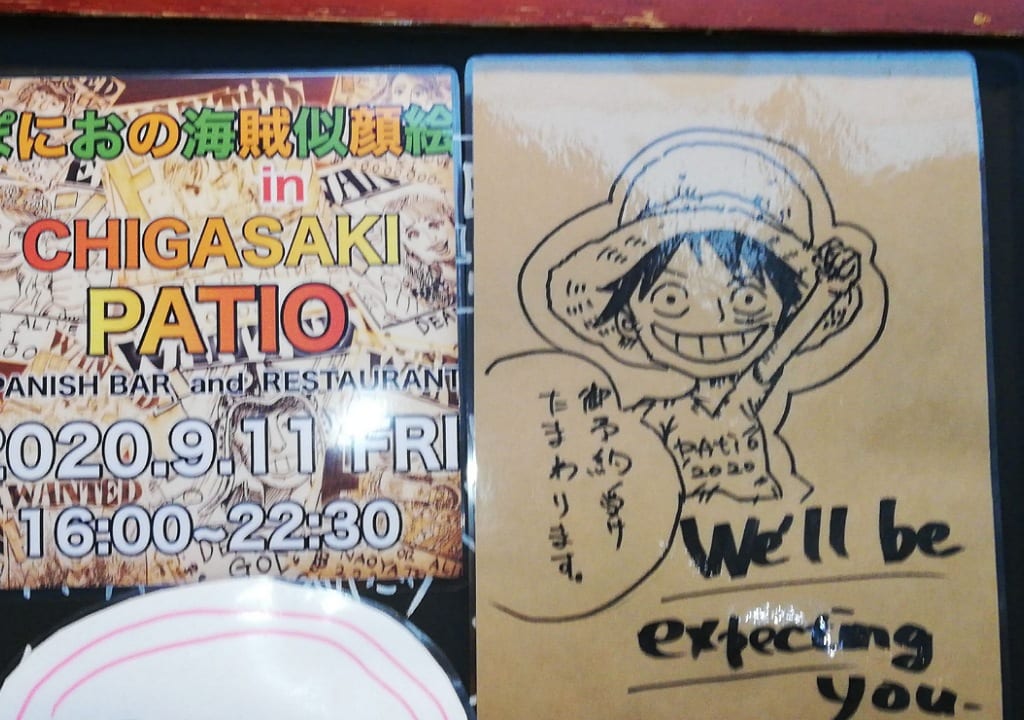 ぱにおの海賊似顔絵
in
CHIGASAKI
PATIO
PANISH BAR and RESTAURANT
2020.9.11 FRI
WANTED
16:00~22:30
御予約受け
たまわります。
PAtio
2020
We'll be
expecting
you-